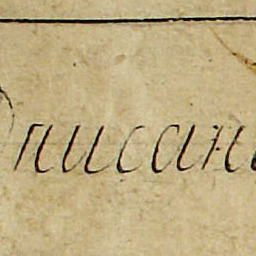 Описані